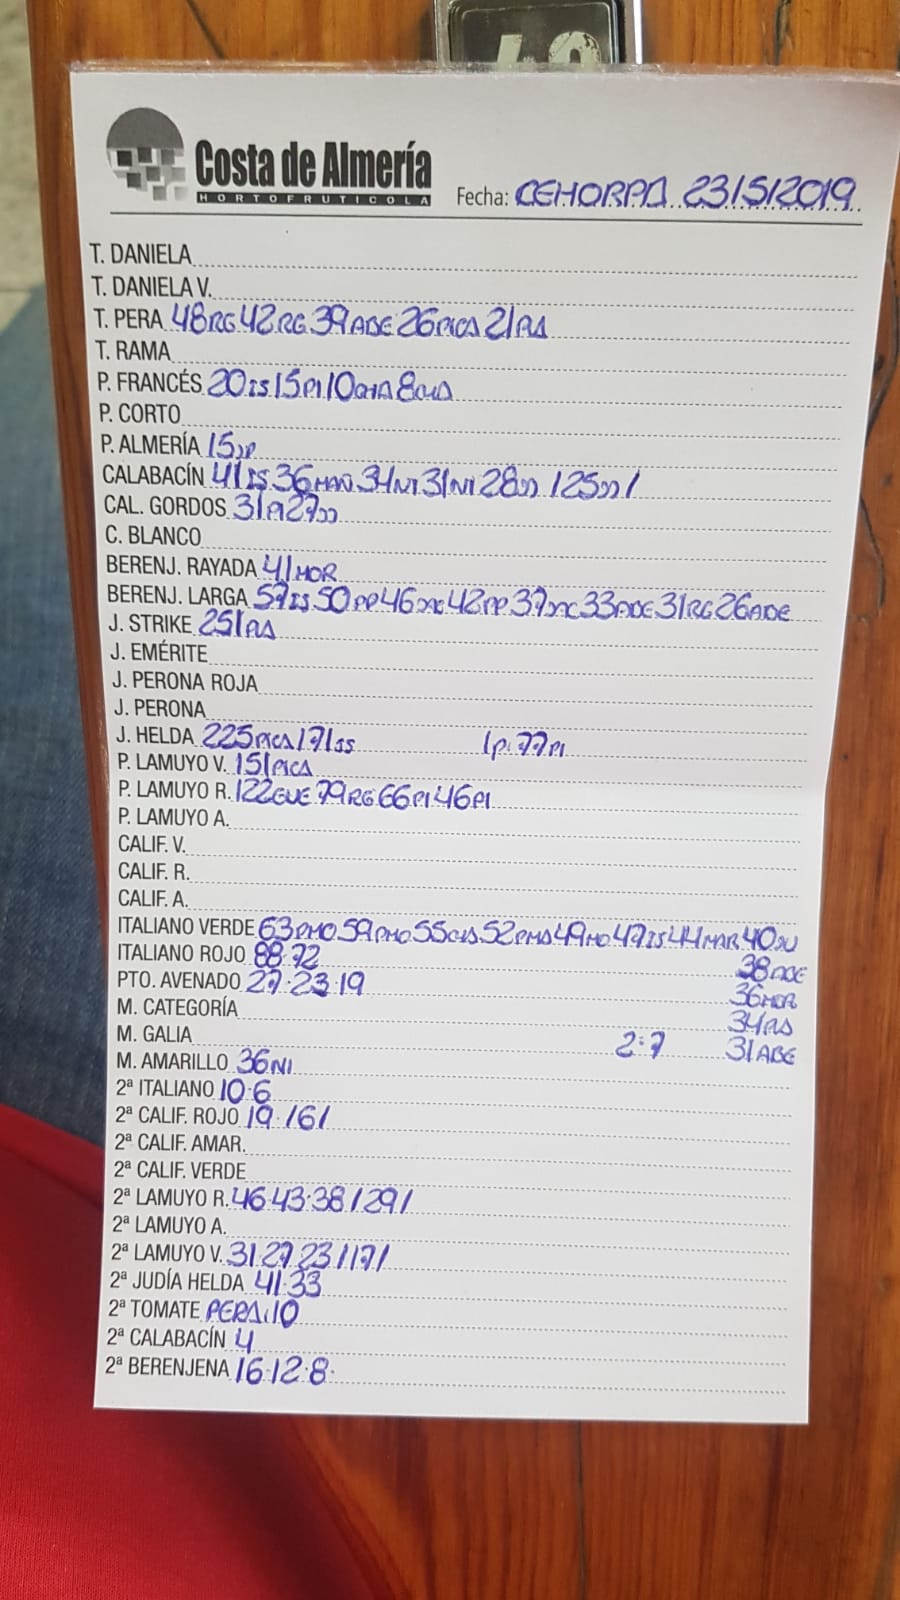 Costa de Almería
HORTOFRUTICOLA
Fecha: CEHORPA 23/5/2019
T. DANIELA
T. DANIELA V.
T. PERA 48RG 42RG 39ABE 26PICA 21RA
T. RAMA
P. FRANCÉS 20IS 15PI 10 8
P. CORTO
P. ALMERÍA 15
CALABACÍN 41IS 36MAÑ 34NI 31NI 28JJ /25JJ/
CAL. GORDOS 31PI 27JJ
C. BLANCO
BERENJ. RAYADA 41MOR
BERENJ. LARGA 57IS 50PP 46 42PP 37 33ADE 31RG 26ADE
J. STRIKE 251RA
J. EMÉRITE
J. PERONA ROJA
J. PERONA
J. HELDA 225PICA /171SS 1p: 77PI
P. LAMUYO V. 151PICA
P. LAMUYO R. 122GUE 79RG 66PI 46PI
P. LAMUYO A.
CALIF. V.
CALIF. R.
CALIF. A.
ITALIANO VERDE 63PMO 59PMO 55 52PMO 49MO 47IS 44MAR 40JU
ITALIANO ROJO 88·72 38ADE
PTO. AVENADO 27·23·19 36MOR
M. CATEGORÍA 34RA
M. GALIA 2:7 31ABE
M. AMARILLO 36NI
2ª ITALIANO 10·6
2ª CALIF. ROJO 19·/6/
2ª CALIF. AMAR.
2ª CALIF. VERDE
2ª LAMUYO R. 46·43·38/29/
2ª LAMUYO A.
2ª LAMUYO V. 31 27 23/17/
2ª JUDÍA HELDA 41·33
2ª TOMATE PERA:10
2ª CALABACÍN 4
2ª BERENJENA 16·12·8·